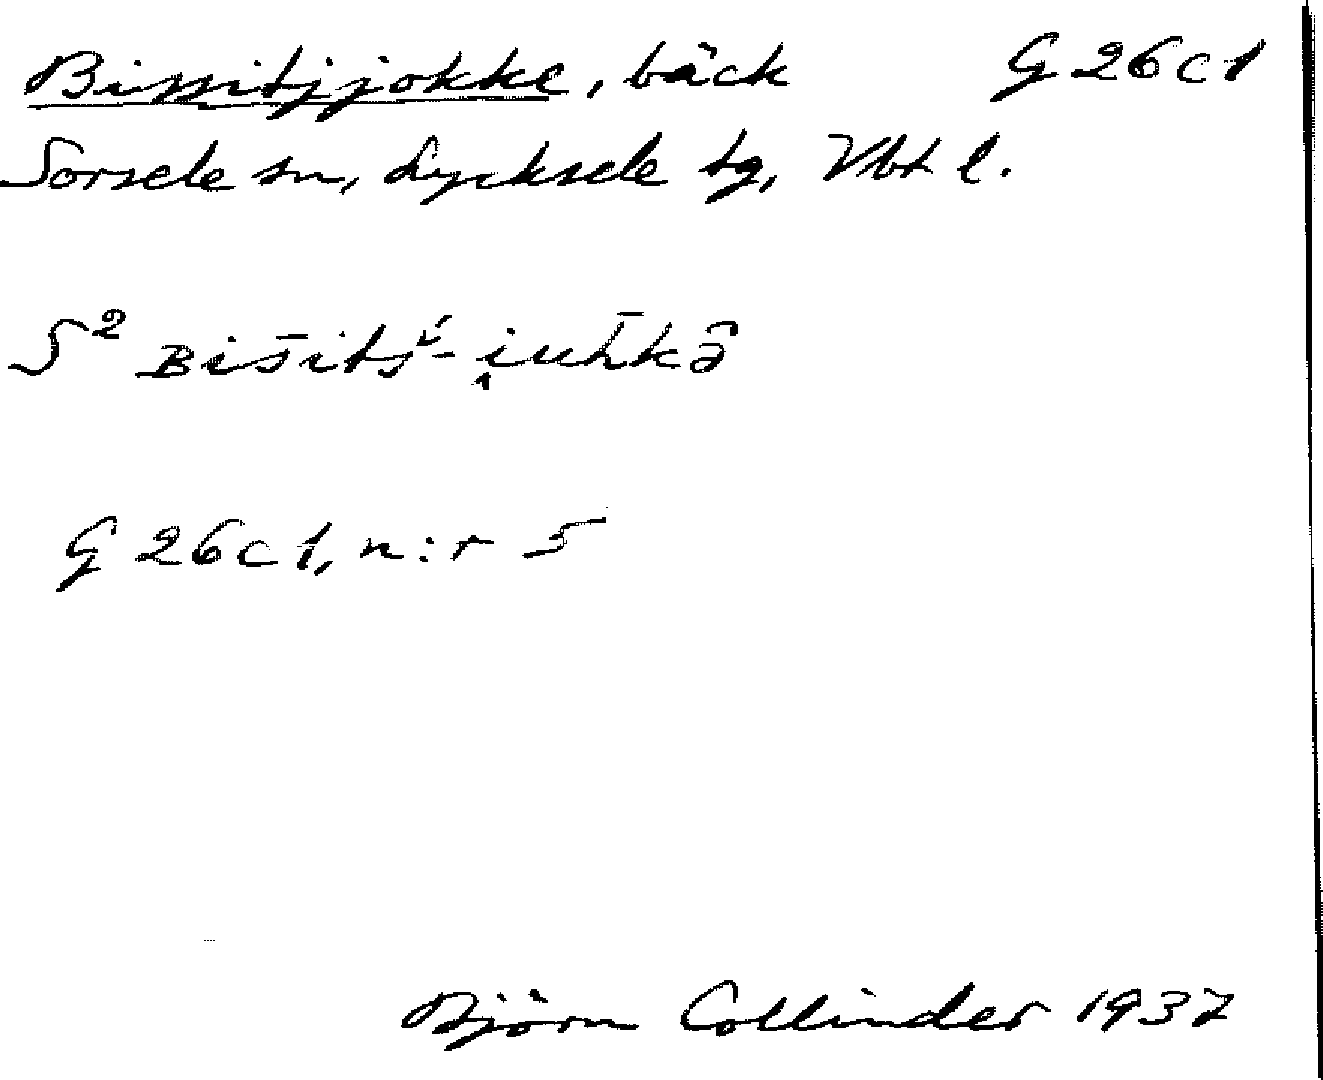 Bissitjjokke, bäck G 26c1
Sorsele sn, Lycksele tg, Vbt l.
S²
G 26c1, n:r 5
Björn Collinder 1937